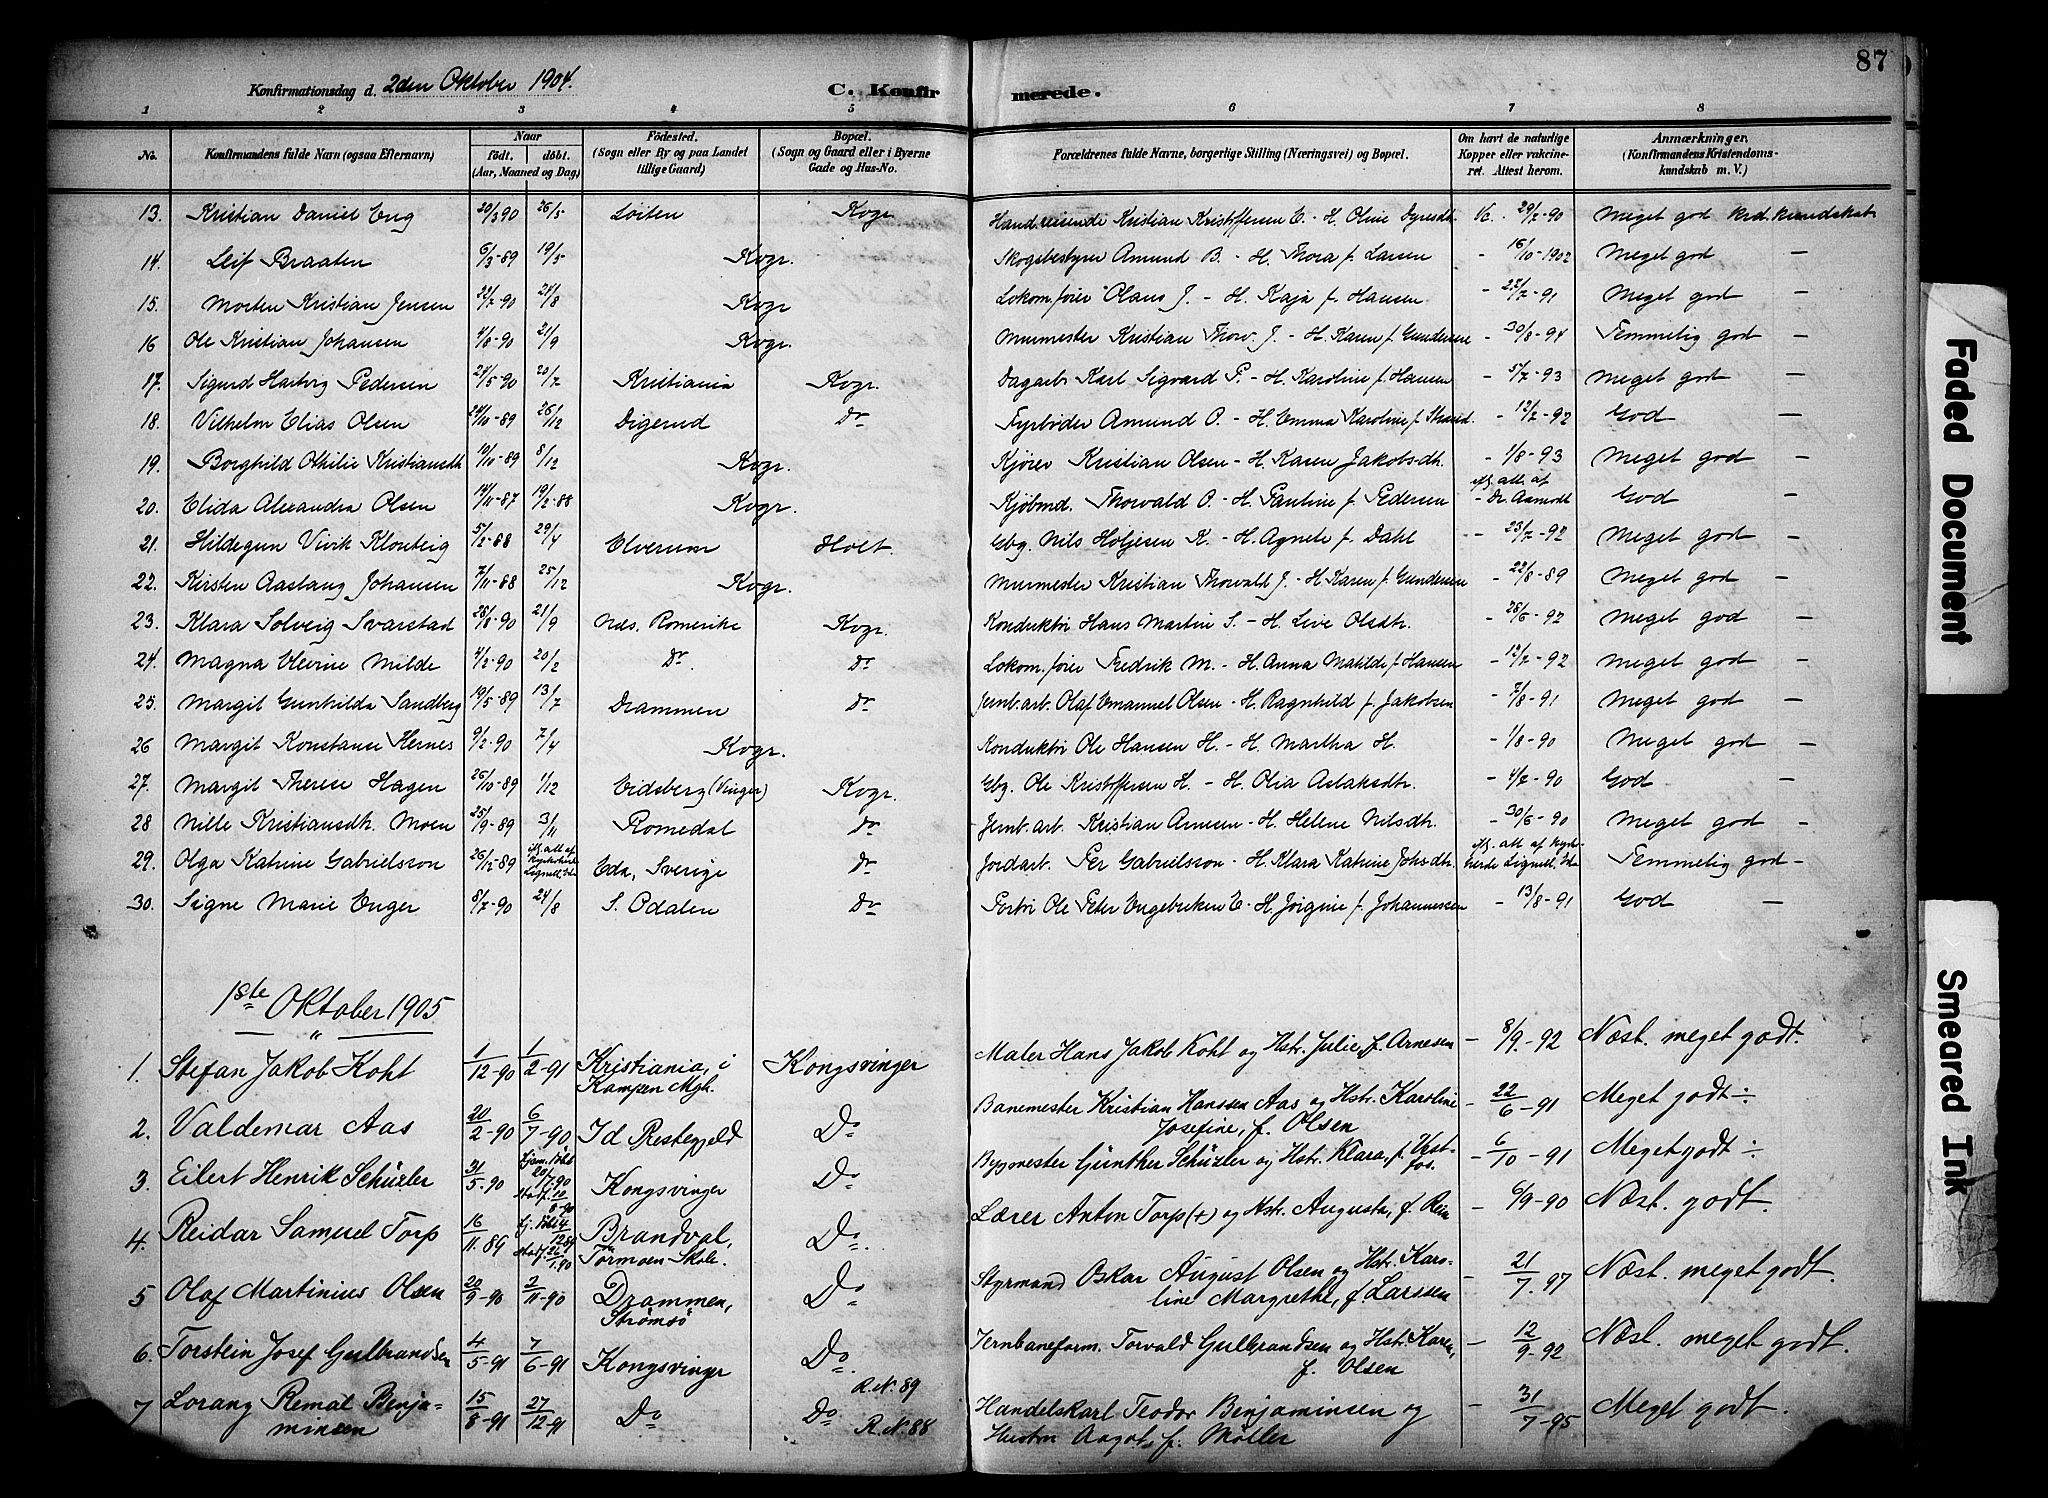 87
Konfirmationsdag d. 2den Oktober 1904. C. Konfirmerede.
1 2 3 4 5 6 7 8
No. Konfirmandens fulde Navn (ogsaa Efternavn) Naar født. døbt. (Aar, Maaned og Dag) Fødested. (Sogn eller By og paa Landet tillige Gaard) Bopæl. (Sogn og Gaard eller i Byerne Gade og Hus-No. Forældrenes fulde Navne, borgerlige Stilling (Næringsvei) og Bopæl. Om havt de naturlige Kopper eller vakcineret. Attest herom. Anmærkninger. (Konfirmandens Kristendomskundskab m. V.)
13. Kristian Daniel Eng 20/3 90 26/5 Löiten Kvgr Hand.reisende Kristian Kristoffersen E. - H. Oline Dyresdt. Vc. 29/7-90 Meget god krd.kundskab
14. Leif Braaten 6/3-89 19/5 Kvgr. Skogbestyrer Amund B. - H. Thora f. Larsen - 16/10-1902 Meget god -
15. Morten Kristian Jensen 22/7-90 24/8 Kvgr Lokom.fører Olaus J. - H. Kaja f. Hansen - 27/7-91 Meget god -
16 Ole Kristian Johansen 4/8-90 21/9 Kvgr. Murmester Kristian Thorv. J. - H. Karen f. Gundersen - 30/8-94 Temmelig god -
17. Sigurd Hartvig Pedersen 24/5-90 20/7 Kristiania Kvgr. Dagarb. Karl Sigvard P. - H. Karoline f. Hansen - 5/7-93 Meget god -
18. Vilhelm Elias Olsen 24/10-89 26/12 Digerud Do Fyrbøder Amund O. - H. Emma Karoline f. Strand. - 12/7-92 God -
19. Borghild Othilie Kristiansdt. 19/10-89 8/12 Kvgr. Kjører Kristian Olsen - H. Karen Jakobsdt. - 1/8-93 Meget god -
20. Elida Alexandra Olsen 14/11-87 19/2-88 Kvgr. Kjøbmd. Thorvald O. - H. Pauline f. Pedersen iflg. att. af - Dr. Aamodt God -
21. Hildegun Vivik Klouteig 5/2-88 29/4 Elverum Holt. Gbg. Nils Holjesen K. - H. Agnete f. Dahl - 23/7-92 Meget god -
22. Kirsten Aaslaug Johansen 7/11-88 25/12 Kvgr. Murmester Kristian Thorvald J. - H. Karen f. Gundersen - 22/8-89 Meget god -
23. Klara Solveig Svarstad 28/8-90 21/9 Nds. Romerike Kvgr. Konduktør Hans Martin S. - H. Live Olsdtr. - 28/6-92 Meget god -
24. Magna Elvine Milde 4/2-90 20/2 Do Do Lokom.fører Fredrik M. - H. Anna Matilde f. Hansen - 12/7-92 Meget god -
25. Margit Gunhilda Sandberg 19/5-89 13/7 Drammen Do Jernb.arb. Olaf Emanuel Olsen - H. Ragnhild f. Jakobsen - 7/8-91 Meget god -
26 Margit Konstanse Hernes 9/2-90 7/4 Kvgr. Konduktør Ole Hansen H. - H. Martha H. - 1/8-90 Meget god -
27. Margit Therese Hagen 26/10-89 1/12 Eidsberg (Vinger) Kvgr. Gbg. Ole Kristoffersen H. - H. Olia Aslaksdtr. - 4/7-90 God -
28 Nille Kristiansdt. Moen 25/9-89 3/11 Romedal Do Jernb.arb. Kristian Arnesen - H. Helene Nilsdtr. - 30/6-90 Meget god -
29. Olga Katrine Gabrielsson 26/12-89 iflg. att. af Eda, Sverige Do Jordarb. Per Gabrielsson - H. Klara Katrine Johsdtr. iflg. att. af Kyrkoherde Lignell, Eda Temmelig god -
30. Signe Marie Enger 8/7-90 24/8 S. Odalen Do Portør Ole Peter Engebretsen E - H. Jørgine f. Johannessen - 13/8-91 God -
1ste Oktober 1905
1. Stefan Jakob Koht 1/12-90 1/2-91 Kristiania, i Kampen Mgh. Kongsvinger Maler Hans Jakob Koht og Hstr. Julie, f. Arnesen - 8/9-92 Næst. meget godt.
2. Valdemar Aas 20/2-90 6/7-90 Id Prestegjeld Do Banemester Kristian Hanssen Aas og Hstr. Karoline Josefine, f. Olsen - 22/6-91 Meget godt ÷
3. Eilert Henrik Schüzler 31/5-90 Hjem. døbt Kongsvinger Do Bygmester Günther Schüzler og Hstr. Klara, f. Vestfos. - 6/10-91 Meget godt ÷
4. Reidar Samuel Torp 16/11.89 Brandval, Tormoen Skole. Do Lærer Anton Torp (+) og Hstr. Augusta, f. Rein - 6/9-90 Næst. godt.
5 Olaf Martinius Olsen 20/9-90 2/11-90 Drammen, Strømsø Do Styrmand Oskar August Olsen og Hstr. Karoline Margrethe, f. Larssen - 21/7.97 Næst. meget godt.
6. Torstein Josef Gulbrandsen 4/5-91 7/6-91 Kongsvinger Do R.N. 89 Jernbaneform. Torvald Gulbrandsen og Hstr. Karen, f. Olsen - 12/9-92 Næst. meget godt.
7 Lorang Remal Benjaminsen 15/8-91 27/12-91 Do Do R.N. 88 Handelskarl Teodor Benjaminsen og Hustru Aagot, f. Møller - 31/7-95 Meget godt.
Faded Document
Smeared Ink